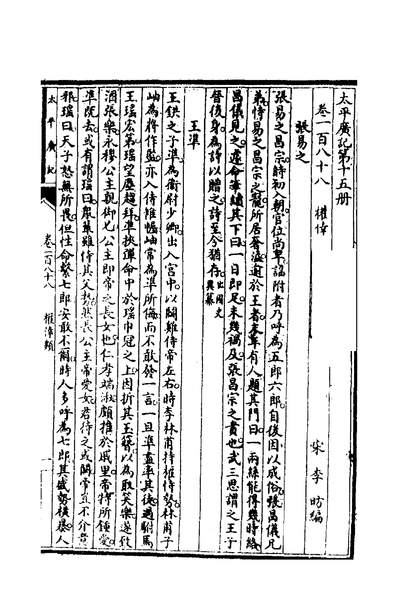 太平廣記第十五册
卷一百八十八　權倖　宋李昉編
張易之
張易之昌宗時初入朝官位尚卑諂附者乃呼為五郎六郎自後因以成俗張昌儀兄
弟恃易之昌宗之寵所居奢溢逾於王者末年有人題其門曰一兩絲能得幾時絡
昌儀見之遽命筆續其下曰一日即足未幾禍及張昌宗之貴也武三思謂之王子
晉後身為詩以贈之詩至今猶存出國史異纂
王準
王鉷之子準為衞尉少卿出入宮中以鬭雞侍帝左右時李林甫持權恃勢林甫子
岫為將作監亦入侍帷幄岫常為準所侮而不敢發一言一旦準盡率其徒過駙馬
王瑤宏第瑤望塵趨拜準挾彈命中於瑤巾冠之上因折其玉簪以為取笑樂遂致
酒張樂永穆公主親御匕公主即帝之長女也仁孝端淑頗推於戚里帝特所鍾愛
準既去或有謂瑤曰鼠輩雖恃其父勢然長公主帝愛女君待之或闕帝豈不介意
邪瑤曰天子怒無所畏但性命繫七郎安敢不爾時人多呼為七郎其盛勢橫暴人
太平廣記
卷一百八十八　權倖類